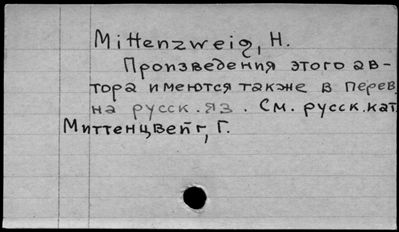 Mittenzweig, H.
Произведения этого ав-
тора имеются также в перев.
на русск. яз. См. русск. кат.
Миттенцвейг, Г.